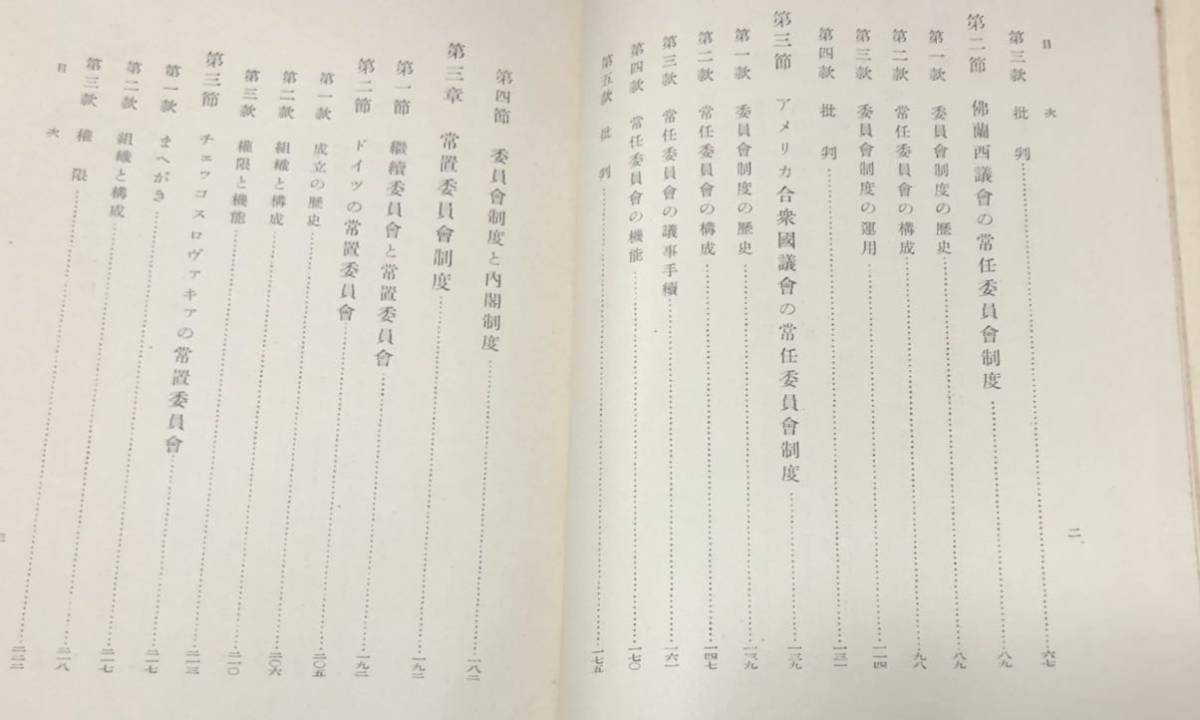 目次
二
第三款 批判……六七
第二節 佛蘭西議會の常任委員會制度……八九
第一款 委員會制度の歷史……八九
第二款 常任委員會の構成……九八
第三款 委員會制度の運用……一一四
第四款 批判……一三一
第三節 アメリカ合衆國議會の常任委員會制度……一三九
第一款 委員會制度の歷史……一三九
第二款 常任委員會の構成……一四七
第三款 常任委員會の議事手續……一六一
第四款 常任委員會の機能……一七〇
第五款 批判……一七五
第四節 委員會制度と內閣制度……一八二
第三章 常置委員會制度……一九二
第一節 繼續委員會と常置委員會……一九二
第二節 ドイツの常置委員會……二〇五
第一款 成立の歷史……二〇五
第二款 組織と構成……二〇六
第三款 權限と機能……二一〇
第三節 チェッコスロヴァキアの常置委員會……二一三
第一款 まへがき……二一七
第二款 組織と構成……二一七
第三款 權限……二一八
目次
三